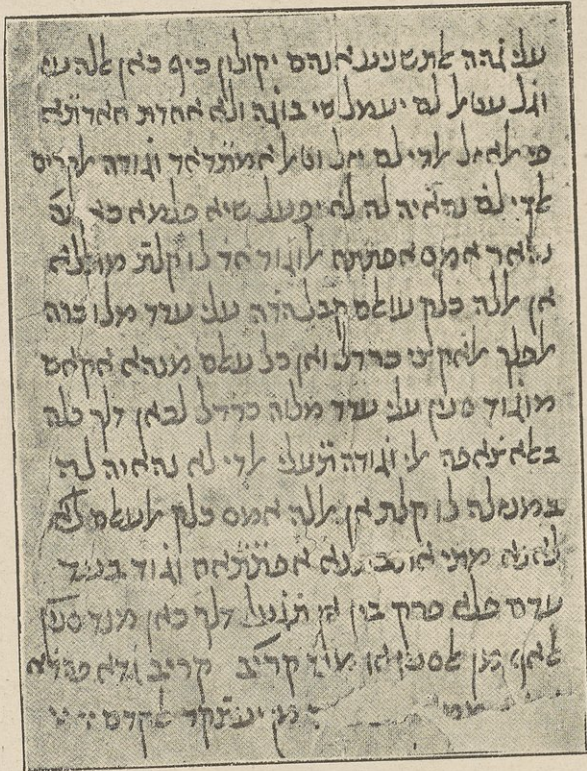 עלי גהה אלתשניע אנהם יקולון כיף כאן אללה עז
וגל עטאל לם יעמל שי בוגה ולא אחדת חאדתא
פי אלאזל אלדי לם יזל וטול אמתדאד וגודה אלקדים
אלדי לם נהאיה לה לא יפעל שיא פלמא כאן
נהאר אמס אפתתח אלוגוד אד לו קלת מתלא
אן אללה כלק עואלם קבל הדה עלי עדד מלו כרה
אלפלך אלאקצי כרדל ואן כל עאלם מנהא אקאם
מוגוד סנין עלי עדד מלוה כרדל לכאן דלך כלה
באלאצאפה אלי וגודה תעאלי אלדי לא נהאיה לה
במנזלה לו קלת אן אללה אמס כלק אלעאלם
לאנא מתי אתבתנא אפתתאח וגוד בעד
עדם פלא פרק בין אן תגעל דלך כאן מנד
אלאף מן אלסנין או מנד קריב קריב
מן יעתקד אלקדם